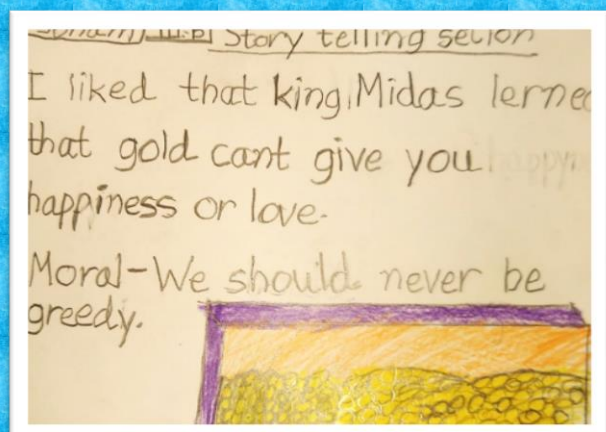 III-B Story telling setion
I liked that king Midas lerned
that gold cant give you
happiness or love.
Moral-We should never be
greedy.